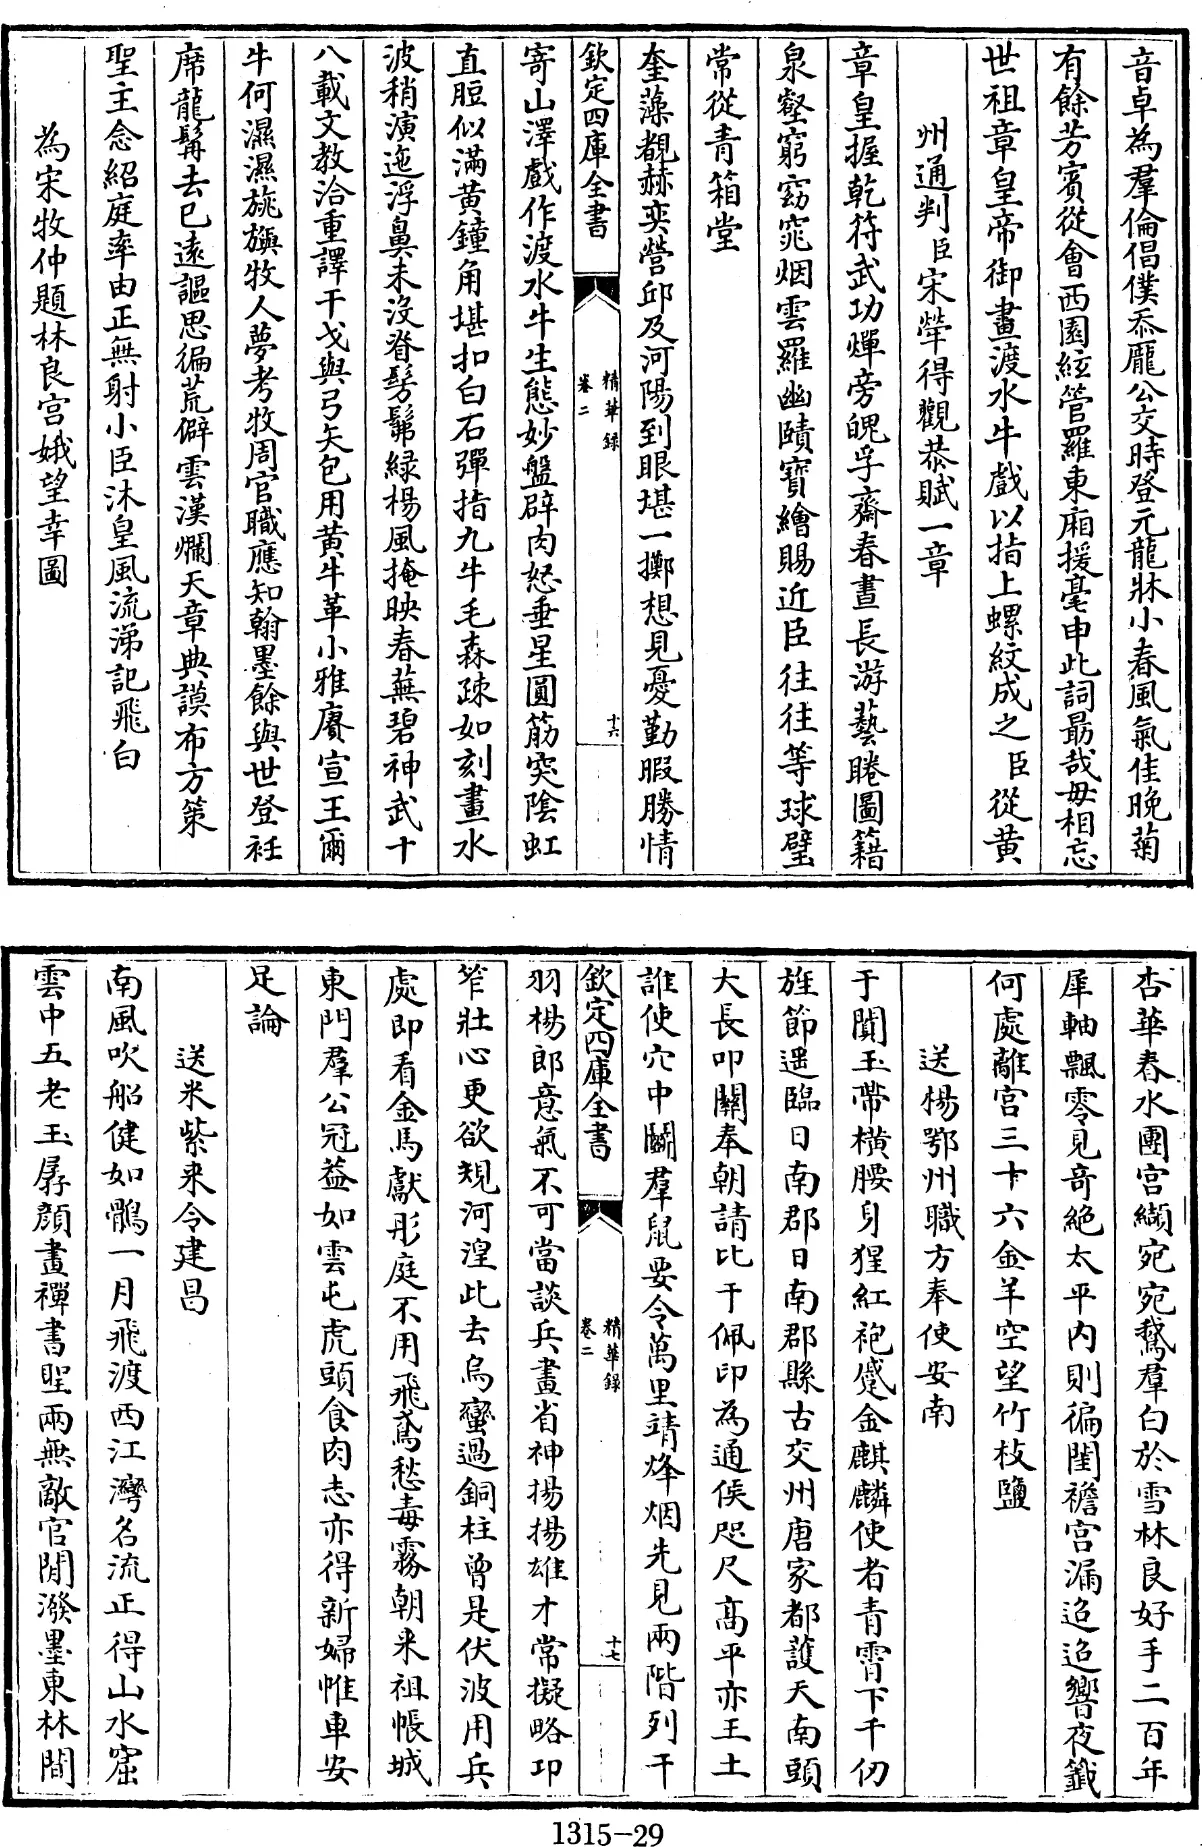 音卓為羣倫倡僕忝龐公交時登元龍牀小春風氣佳晚菊
有餘芳賓從會西園絃管羅東廂援毫申此詞最哉毋相忘
世祖章皇帝御畫渡水牛戲以指上螺紋成之臣從黄
州通判臣宋犖得觀恭賦一章
章皇握乾符武功燀旁魄孚齋春晝長游藝睠圖籍
泉壑窮窈窕烟雲羅幽賾寶繪賜近臣往往等球璧
常從青箱堂
奎藻覩赫奕營邱及河陽到眼堪一擲想見憂勤暇勝情
欽定四庫全書
精華錄
卷二
十六
寄山澤戲作渡水牛生態妙盤辟肉怒垂星圓筋突陰虹
直脰似滿黄鐘角堪扣白石彈指九牛毛森疎如刻畫水
波稍演迤浮鼻未沒脊髣髴緑楊風掩映春蕪碧神武十
八載文教洽重譯干戈與弓矢包用黄牛革小雅賡宣王爾
牛何濕濕旐旟牧人夢考牧周官職應知翰墨餘與世登衽
席龍髯去已遠謳思徧荒僻雲漢爛天章典謨布方策
聖主念紹庭率由正無射小臣沐皇風流涕記飛白
為宋牧仲題林良宫娥望幸圖
杏華春水團宫纈宛宛鵞羣白於雪林良好手二百年
犀軸飄零見奇絶太平内則徧閨襜宫漏迢迢響夜籤
何處離宫三十六金羊空望竹枝鹽
送楊鄂州職方奉使安南
于闐玉帶横腰身猩紅袍蹙金麒麟使者青霄下千仞
旌節遥臨日南郡日南郡縣古交州唐家都護天南頭
大長叩關奉朝請比干佩印為通侯咫尺髙平亦王土
誰使穴中鬭羣鼠要令萬里靖烽烟先見兩階列干
欽定四庫全書
精華錄
卷二
十七
羽楊郎意氣不可當談兵畫省神揚揚雄才常擬略卭
笮壯心更欲規河湟此去烏蠻過銅柱曾是伏波用兵
處即看金馬獻彤庭不用飛鳶愁毒霧朝来祖帳城
東門羣公冠葢如雲屯虎頭食肉志亦得新婦帷車安
足論
送米紫来令建昌
南風吹船健如鶻一月飛渡西江灣名流正得山水窟
雲中五老玉孱顔畫禪書聖兩無敵官閒潑墨東林間
1315-29